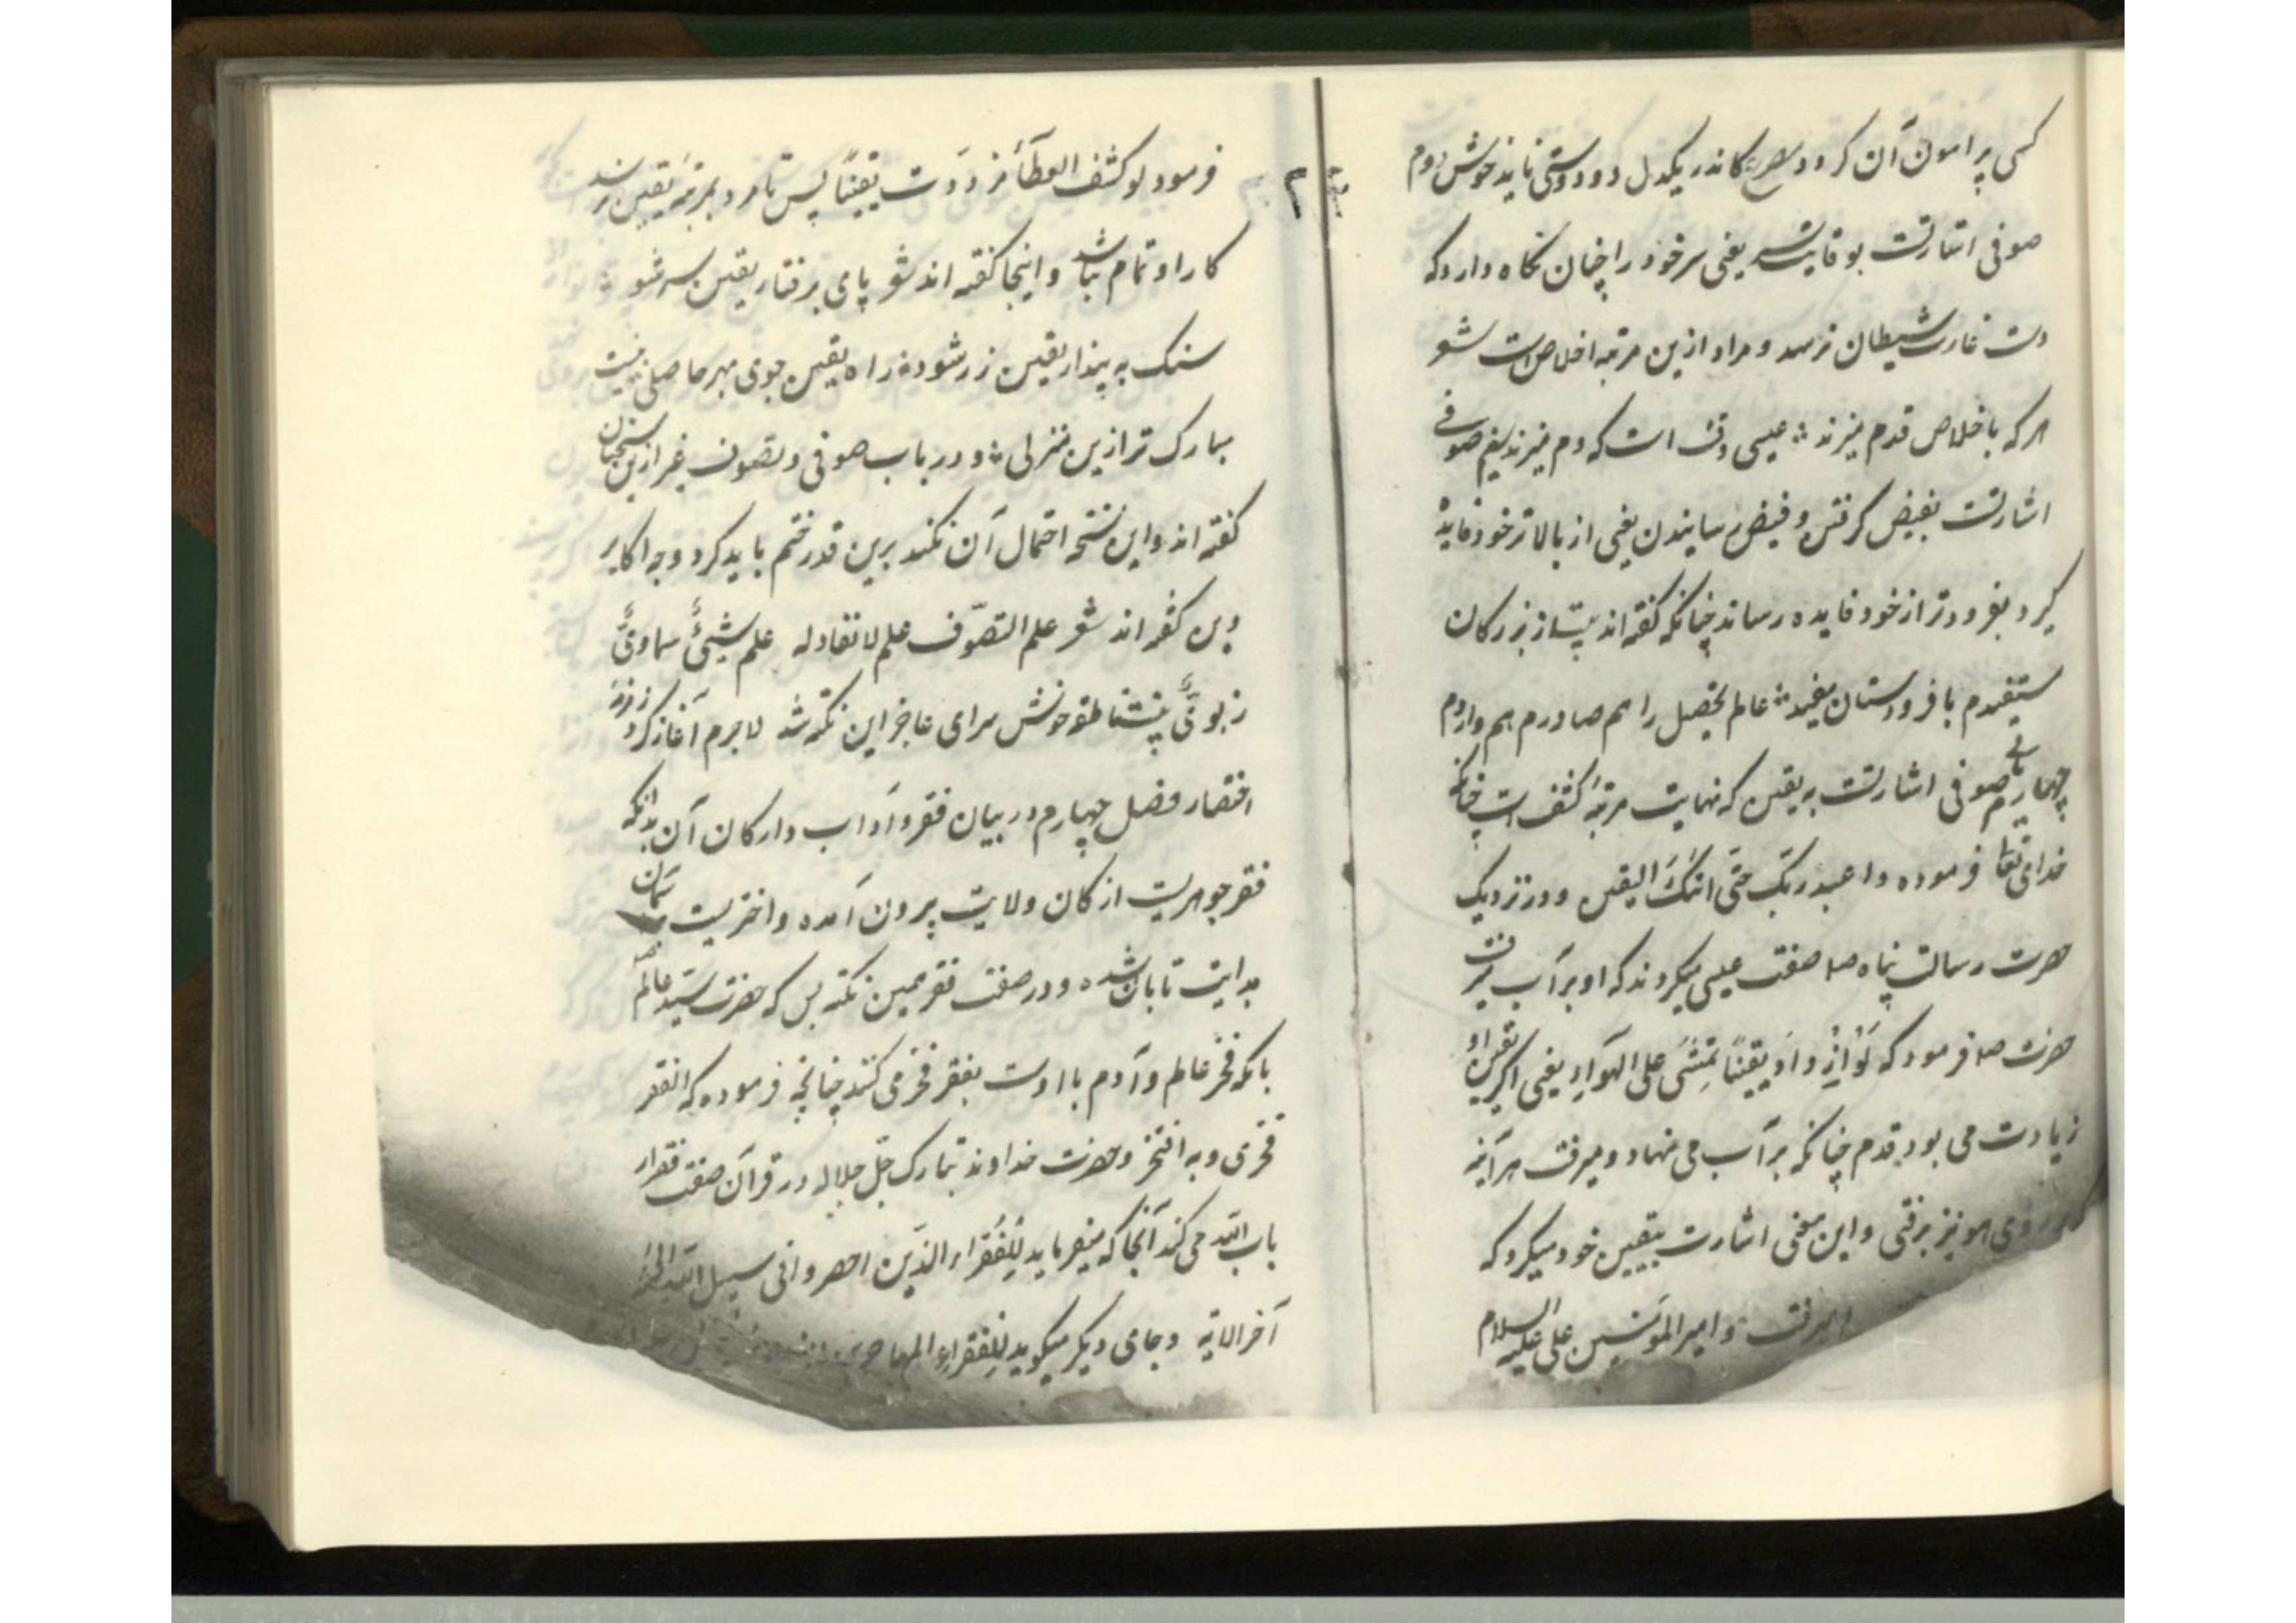 کسی پرامون آن کردد مصرع کاندر یکدل دو دوستی ناید خوش دوم
صوفی اشارتست بوقایت سر یعنی سر خود را چنان نگاه دارد که
دست غارت شیطان نرسد و مراد ازین مرتبه اخلاص است شعر
هر که باخلاص قدم میزند عیسی وقت است که دم میزند سیم صوفی
اشارتست بفیض کرفتن و فیض رسانیدن یعنی از بالاتر خود فایده
کیرد بفرودتر از خود فایده رساند چنانکه کفته اند بیت از بزرکان
مستفیدم با فرودستان مفید عالم تحصیل را هم صادرم هم واردم
چهارم یای صوفی اشارتست به یقین که نهایت مرتبهٔ کشف است چنانکه
خدای تعا فرموده واعبد ربک حتّی اتیک الیقین و در نزدیک
حضرت رسالت پناه صلا صفت عیسی میکردند که او بر آب میرفت
حضرت صلا فرمود که لو ازداد یقیناً تمشی علی الهواء یعنی اکر یقین او
زیادت می بود قدم چنانکه بر آب می نهاد و میرفت هرآینه
بر روی هوا نیز برفتی و این معنی اشارت بیقین خود میکرد که
میرفت و امیر المؤمنین علی علیه السلام
فرمود لو کشف الغطآء مازددت یقیناً پس تا مرد بمرتبهٔ یقین نرسد
کار او تمام نباشد و اینجا کفته اند شعر پای برفتار یقین سر شود
سنک به پندار یقین زر شود راه یقین جوی بهر حاصلی نیست
مبارک تر ازین منزلی و در باب صوفی و تصوف غیر ازین سخنان
کفته اند و این نسخه احتمال آن نکند برین قدر ختم باید کرد و چه اکابر
دین کفته اند شعر علم التصوّف علم لا نفاد له علم شیئٌ سماویٌّ
ربوبیٌّ پیش ناطقه خوش سرای عاجز این نکته شد لاجرم آغاز کرد از ره
اختصار فصل چهارم در بیان فقر و آداب و ارکان آن بدانکه
فقر جوهریست از کان ولایت بیرون آمده و اختریست از آسمان
هدایت تابان شده و در صفت فقر همین نکته بس که حضرت سیّد عالم
بانکه فخر عالم و آدم بااوست بفقر فخر می کند چنانچه فرموده که الفقر
فخری و به افتخر و حضرت خداوند تبارک جلّ جلاله در قرآن صفت فقرا
باب الله می کند آنجا که میفرماید للفقراء الذین احصروا فی سبیل الله الی
آخر الایه و جای دیکر میکوید للفقراء المهاجرین